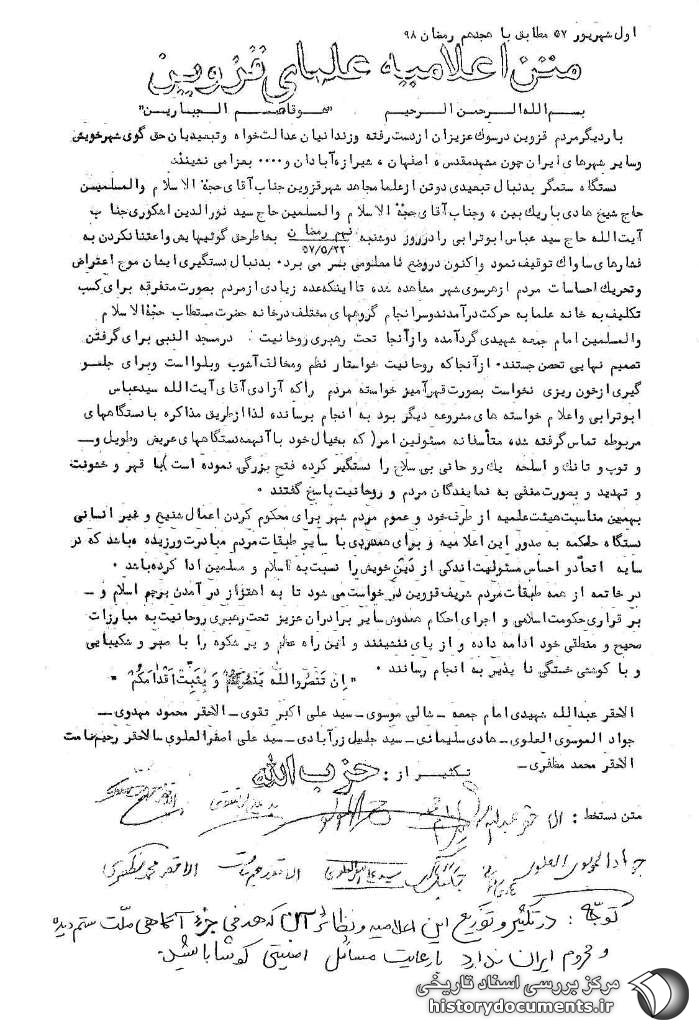 اول شهریور ۵۷ مطابق با هجدهم رمضان ۹۸
متن اعلامیه علمای قزوین
بسم الله الرحمن الرحیم "هو قاصم الجبارین"
بار دیگر مردم قزوین در سوك عزیزان از دست رفته و زندانیان عدالت خواه و تبعیدیان حق گوی شهر خویش
و سایر شهرهای ایران چون مشهد مقدس ، اصفهان ، شیراز ، آبادان و ۰۰۰۰ بعزا می نشینند
دستگاه ستمگر بدنبال تبعیدی دو تن از علما مجاهد شهر قزوین جناب آقای حجة الاسلام والمسلمین
حاج شیخ هادی باریك بین ، و جناب آقای حجة الاسلام والمسلمین حاج سید نورالدین اشکوری جناب
آیت الله حاج سید عباس ابوترابی را در روز دوشنبه نهم رمضان ۵۷/۵/۲۳ بخاطر حق گوئیهایش و اعتنا نکردن به
فشارهای ساواك توقیف نمود و اکنون در وضع نا معلومی بسر می برد۰ بدنبال دستگیری ایشان موج اعتراض
و تحریك احساسات مردم از هر سوی شهر مشاهده شده تا اینکه عده زیادی از مردم بصورت متفرقه برای کسب
تکلیف به خانه علما به حرکت درآمدند و سرانجام گروههای مختلف در خانه حضرت مستطاب حجة الاسلام
والمسلمین امام جمعه شهیدی گرد آمده و از آنجا تحت رهبری روحانیت در مسجد النبی برای گرفتن
تصمیم نهایی تحصن جستند۰ از آنجا که روحانیت خواستار نظم و مخالف آشوب و بلوا است و برای جلو
گیری از خون ریزی نخواست بصورت قهرآمیز خواسته مردم را که آزادی آقای آیت الله سید عباس
ابوترابی و اعلام خواسته های مشروعه دیگر بود به انجام برساند لذا از طریق مذاکره با دستگاههای
مربوطه تماس گرفته شد، متأسفانه مسئولین امر( که بخیال خود با آنهمه دستگاههای عریض و طویل و ــ
و توپ و تانك و اسلحه یك روحانی بی سلاح را دستگیر کرده فتح بزرگی نموده است)با قهر و خشونت
و تهدید و بصورت منفی به نمایندگان مردم و روحانیت پاسخ گفتند ۰
بهمین مناسبت هیئت علمیه از طرف خود و عموم مردم شهر برای محکوم کردن اعمال شنیع و غیر انسانی
دستگاه حاکمه به صدور این اعلامیه و برای همدردی با سایر طبقات مردم مبادرت ورزیده باشد که در
سایه اتحاد و احساس مسئولیت اندکی از دَین خویش را نسبت به اسلام و مسلمین ادا کرده باشد ۰
در خاتمه از همه طبقات مردم شریف قزوین درخواست می شود تا به اهتزاز در آمدن پرچم اسلام و ــ
بر قراری حکومت اسلامی و اجرای احکام همدوش سایر برادران عزیز تحت رهبری روحانیت به مبارزات
صحیح و منطقی خود ادامه داده و از پای ننشینند و این راه عظیم و پر شکوه را با صبر و شکیبایی
و با کوشش خستگی نا پذیر به انجام رسانند ۰
" اِن تَنصُروا الله یَنصُرکُم وَ یُثَبِّت اَقدامَکُم "
الاحقر عبدالله شهیدی امام جمعه ــ موسوی ــ سید علی اکبر تقوی ــ الاحقر محمود مهدوی ــ
جواد الموسوی العلوی ــ هادی سلیمانی ــ سید جلیل زرآبادی ــ سید علی اصغر العلوی ــ الاحقر رحیم
الاحقر محمد مظفری ــ
تکثیر از : حزب الله
متن دستخط : الاحقر عبدالله
جواد الموسوی العلوی سید علی اصغر العلوی الاحقر محمد مظفری
توجّه : در تکثیر و توزیع این اعلامیه و نظائر آن که هدفی جزء آگاهی ملّت ستم دیده
و محروم ایران ندارد با رعایت مسائل امنیتی کوشا باشید.
مرکز بررسی اسناد تاریخی
historydocuments.ir